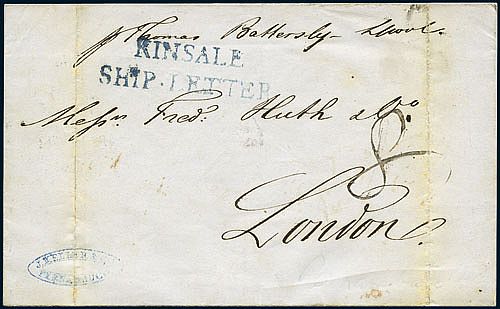 p Thomas Battersby Lpool.
KINSALE
SHIP-LETTER
Messrs Fredk Huth & Co
8
London.